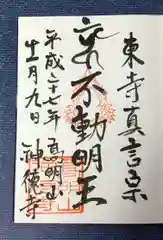 東寺真言宗
不動明王
平成二十七年 高明山
十一月九日 神徳寺